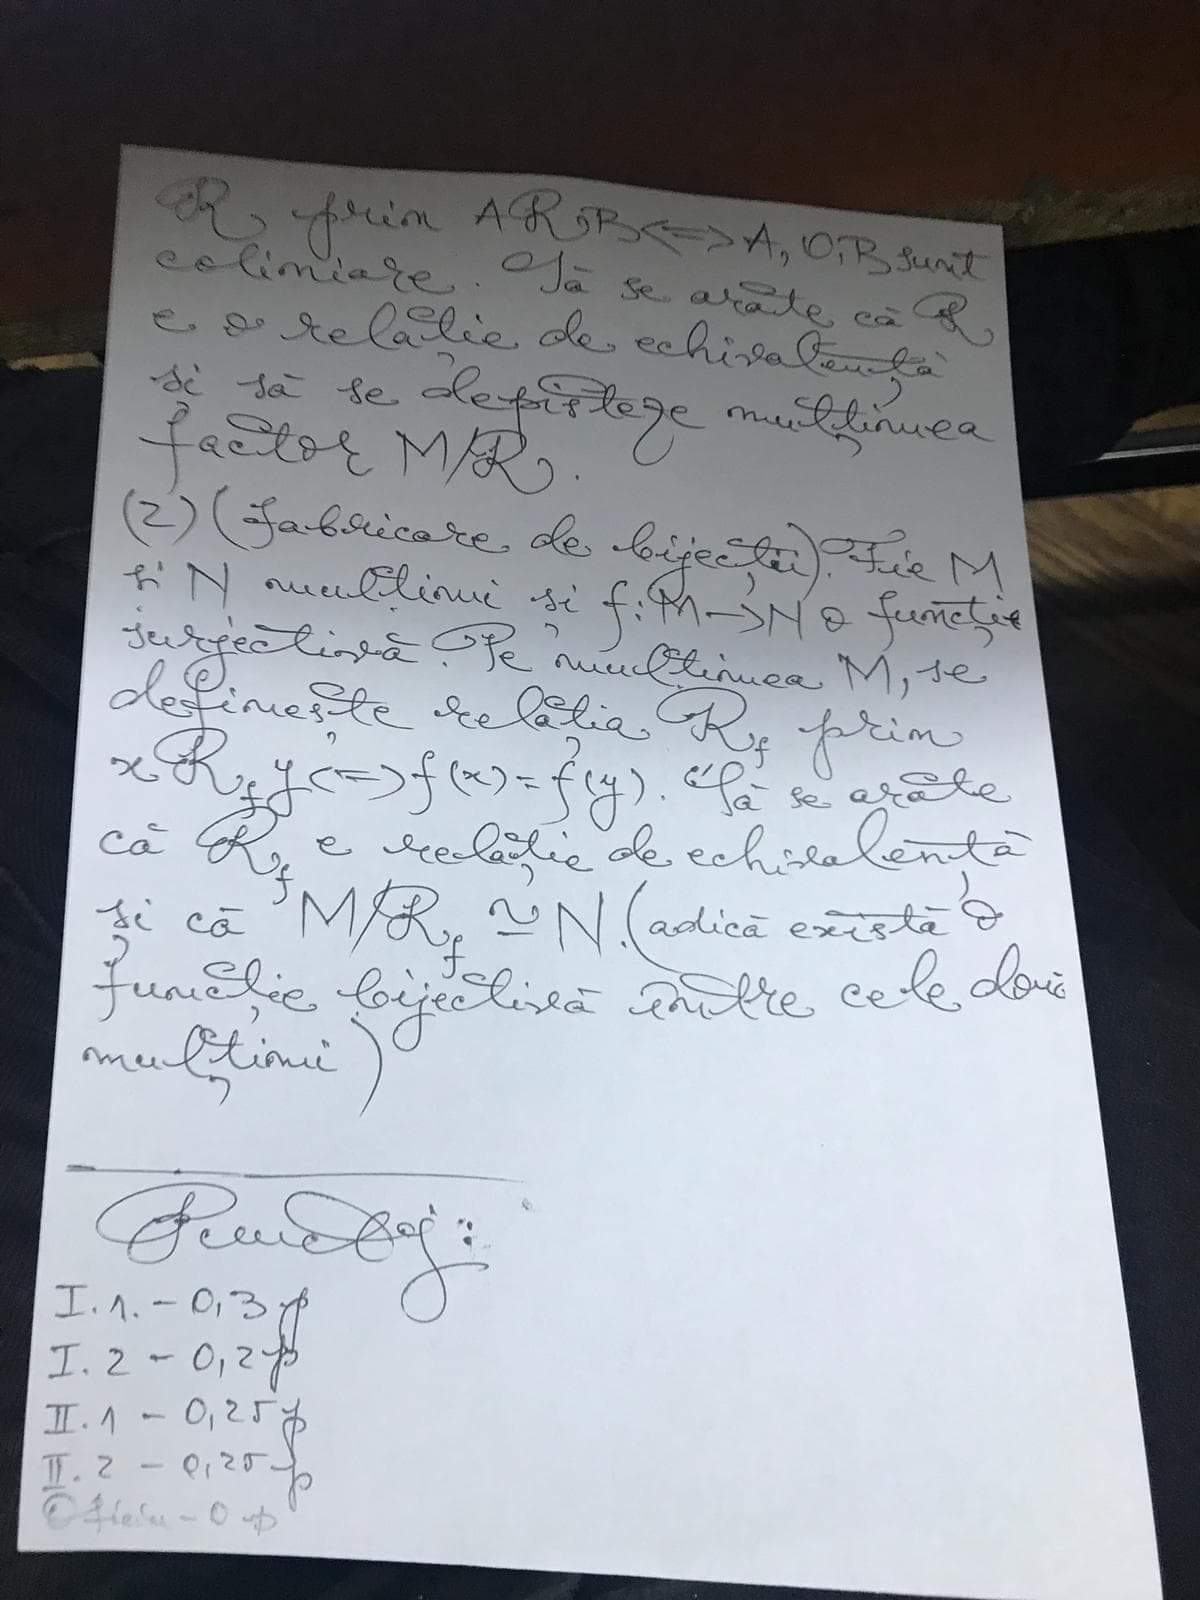 R prin A R B <=> A, O, B sunt
coliniare. Să se arate că R
e o relație de echivalență
și să se depisteze mulțimea
factor M/R.
(2) (fabricare de bijecții). Fie M
și N mulțimi și f: M -> N o funcție
surjectivă. Pe mulțimea M, se
definește relația R_f prin
x R_f y <=> f(x) = f(y). Să se arate
că R_f e relație de echivalență
și că M/R_f ≃ N. (adică există o
funcție bijectivă între cele două
mulțimi)
I. 1. - 0,3 p
I. 2 - 0,2 p
II. 1 - 0,25 p
II. 2 - 0,25 p
Oficiu - 0 p